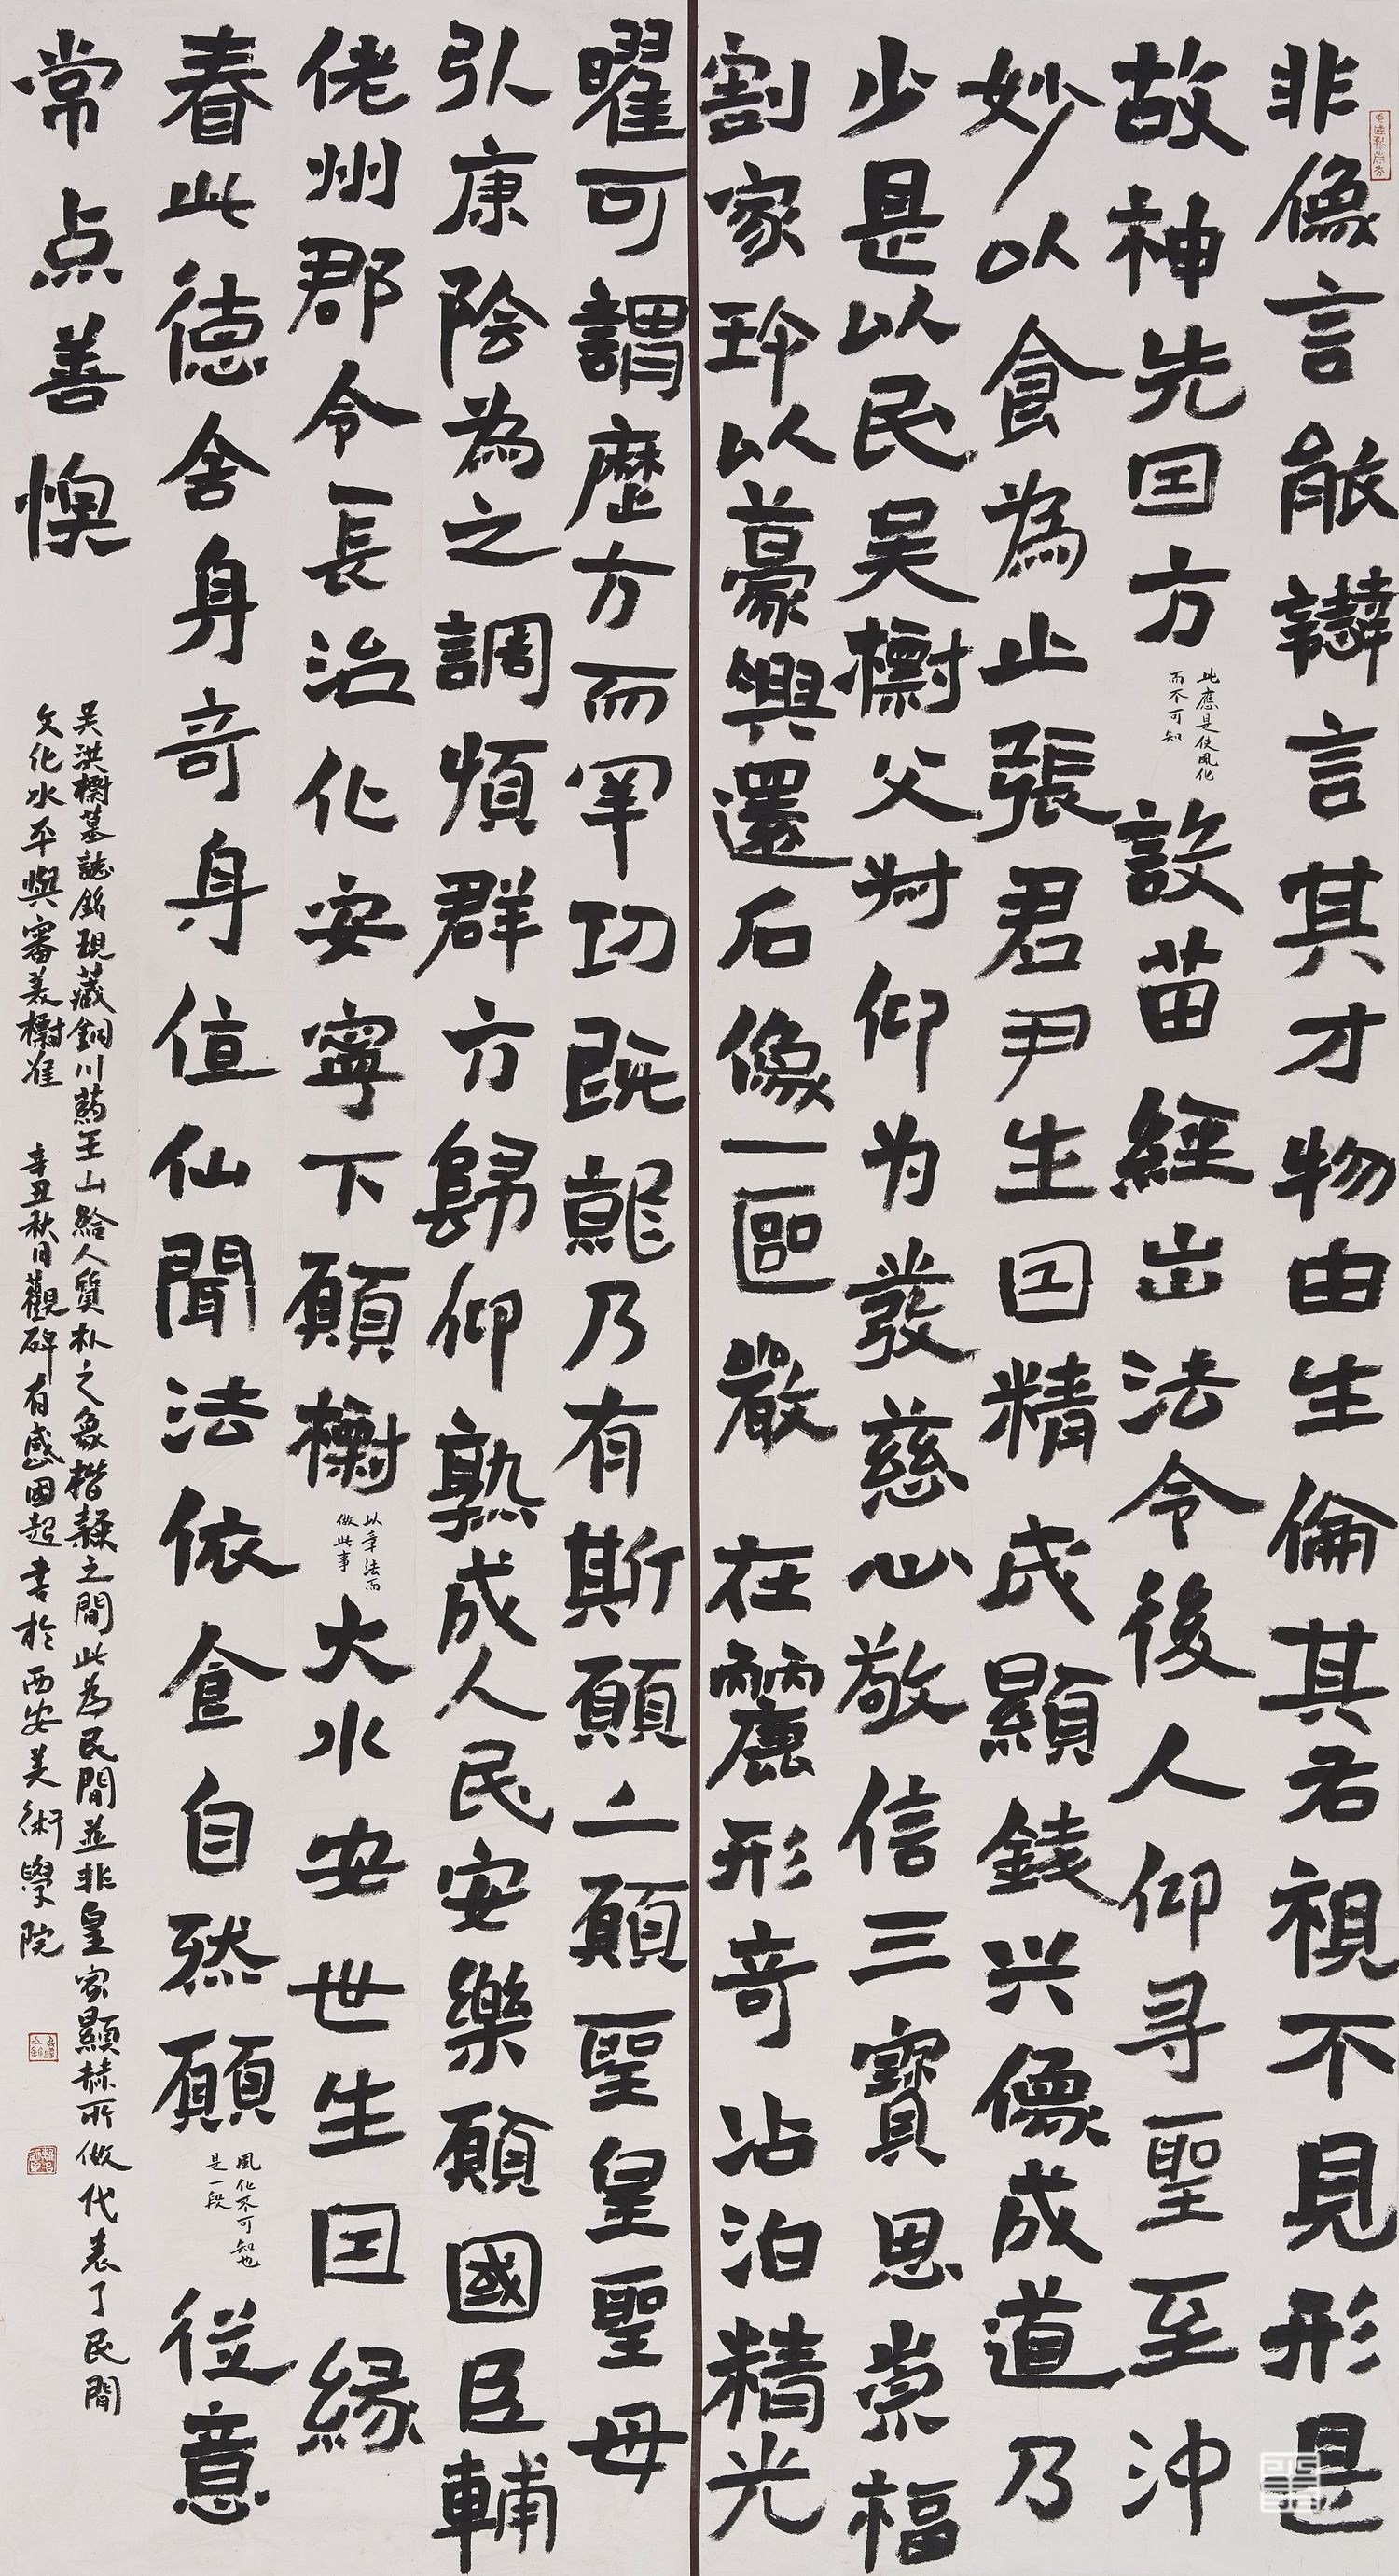 非像言能辯言其才物由生倫其君視不見形是
故神先囯方
此應是使風化
而不可知
設苗經出法令後人仰寻聖至沖
妙以食為止張君尹生囯精氏顯錢兴像成道乃
少是以民吴檦父 仰为發慈心敬信三寶思崇福
割家珎以 興還石像一區嚴在麗形竒沾泊精光
曜可謂歷方而罕功既龍乃有斯願上願聖皇聖母
弘康陰為之調煩群方歸仰熟成人民安樂願國臣輔
佬州郡令長治化安寧下願檦
以章法而
做此事
大水安世生囯緣
春此德舍身竒身值仙聞法依食自然願
風化不可知也
是一段
從意
常点善懊
吴洪檦墓誌銘現藏銅川藥王山給人質朴之象楷隸之間此為民間並非皇家顯赫所做代表了民間
文化水平與審美檦准 辛丑秋日觀碑有感國超書於西安美術學院